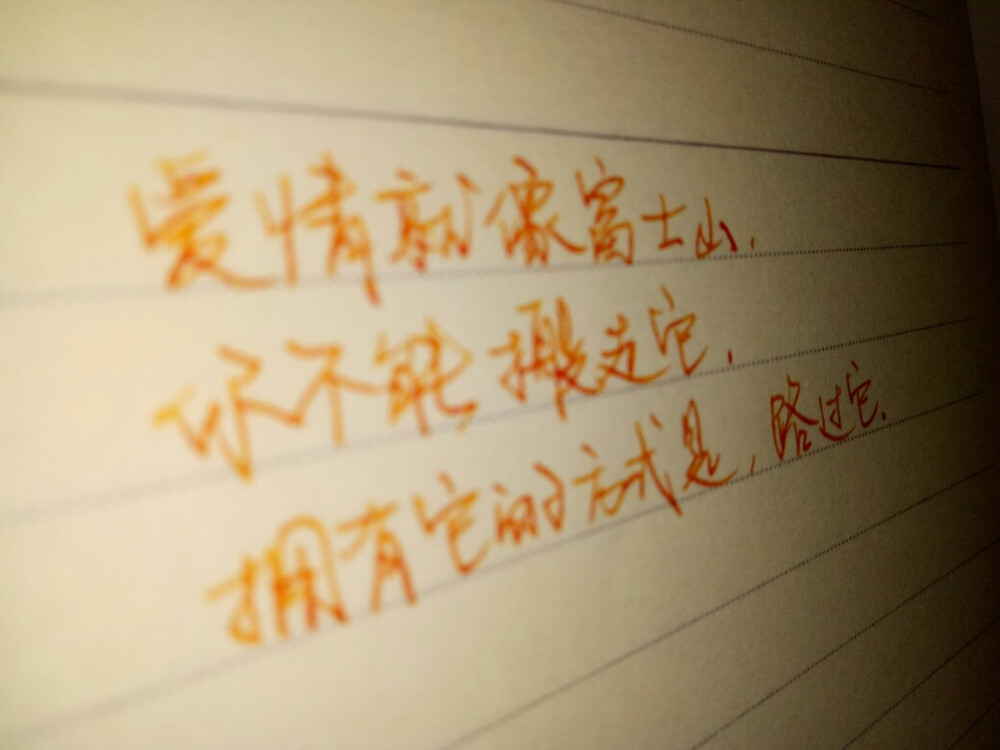 爱情就像富士山.
你不能搬走它.
拥有它的方式是,路过它.